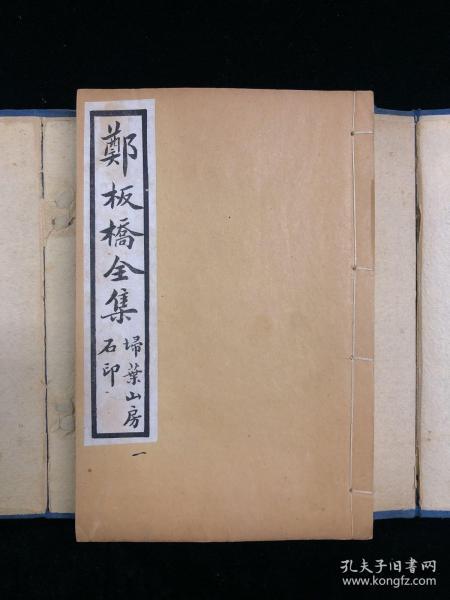 鄭板橋全集
埽葉山房
石印
一
孔夫子旧书网
www.kongfz.com